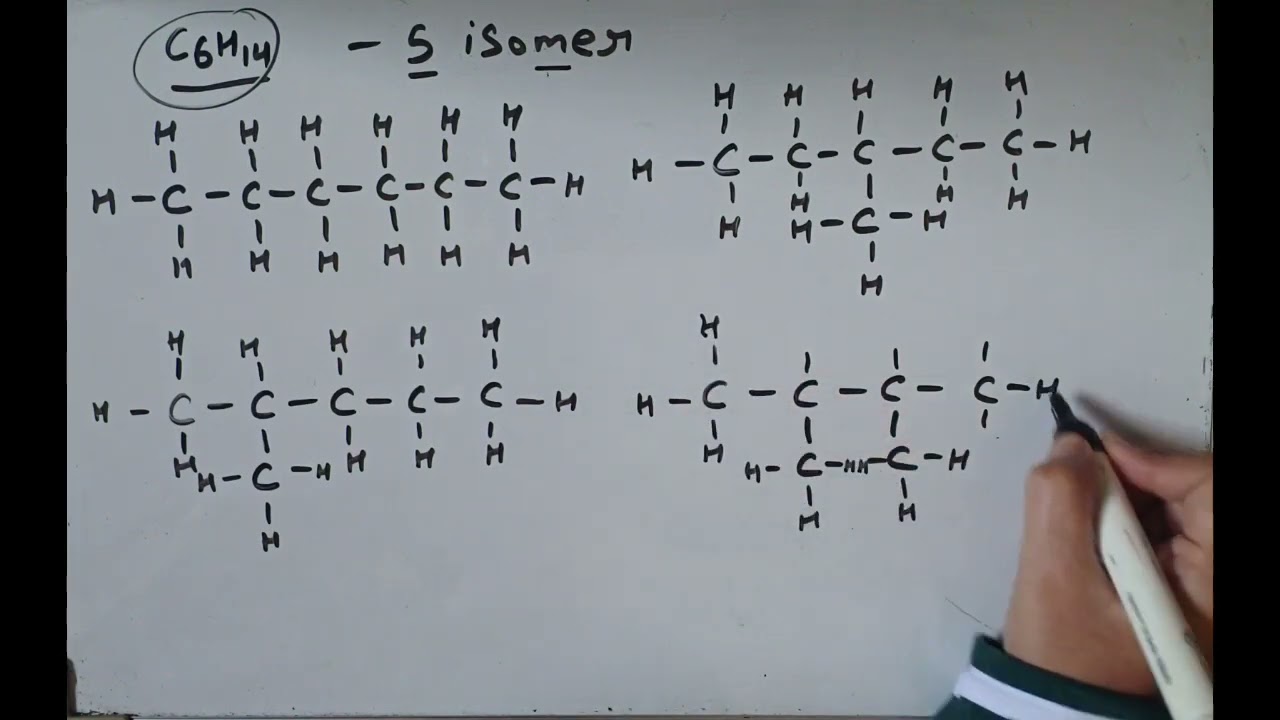 C6H14 - 5 isomer
H H H H H H
H - C - C - C - C - C - C - H
H H H H H H
H H H H H
H - C - C - C - C - C - H
H H H H
H - C - H
H
H H H H H
H - C - C - C - C - C - H
H H H H
H - C - H
H
H
H - C - C - C - C - H
H
H - C - H H - C - H
H H